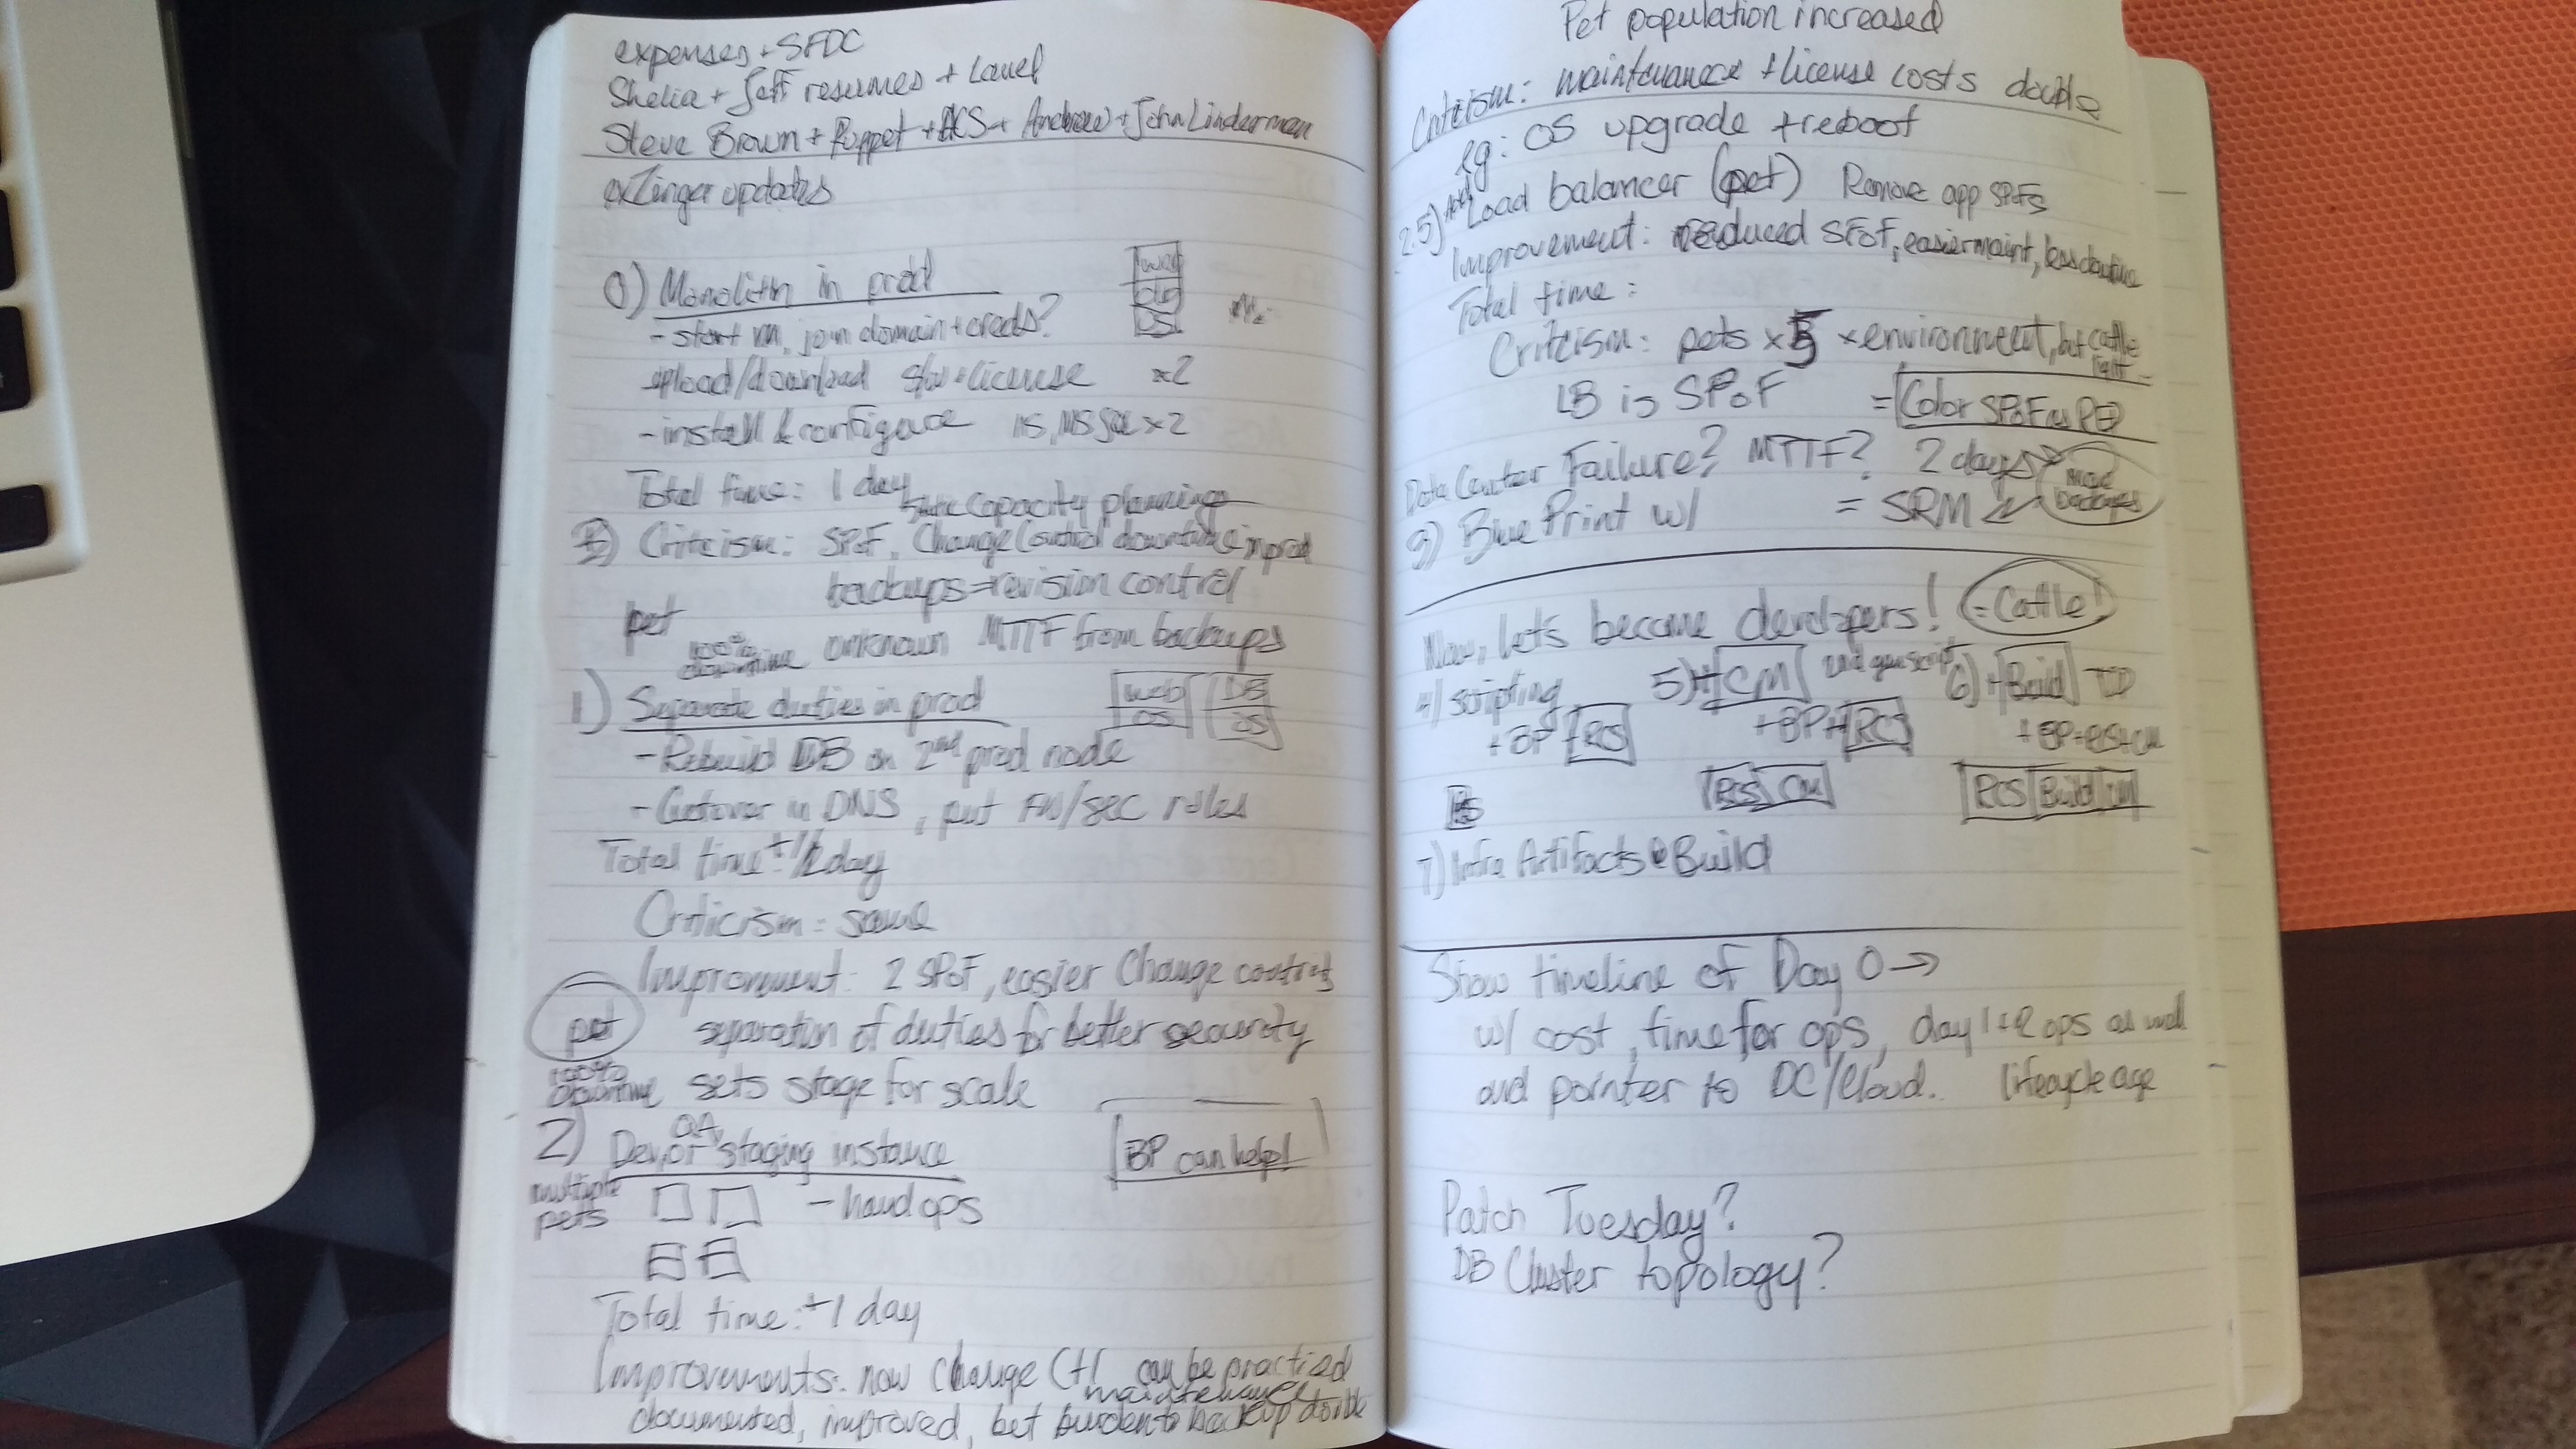 expenses + SFDC
Shelia + Jeff resumes + Lauel
Steve Brown + Puppet + ACS + Andrew + John Linderman
updates
0) Monolith in prod
web
db
OS
- start vm, join domain + creds?
upload/download + license x2
- install & configure IIS, MS SQL x2
Total time: 1 day
static capacity planning
Criticism: SPoF, Change Control downtime in prod
backups = revision control
pet
100% downtime unknown MTTF from backups
1) Separate duties in prod
web DB
OS OS
- Rebuild DB on 2nd prod node
- Cutover in DNS, put FW/sec rules
Total time: +1/2 day
Criticism = same
Improvement: 2 SPoF, easier Change control
pet separation of duties for better security
100% downtime sets stage for scale
2) Dev, or QA, staging instance
BP can help!
multiple pets - hand ops
Total time: +1 day
Improvements: now Change Ctl can be practised
maintenance
documented, improved, but burden to backup double
Pet population increased
Criticism: maintenance + license costs double
eg: OS upgrade + reboot
2.5) Add Load balancer (pet) Remove app SPoFs
Improvement: reduced SPoF, easier maint, less downtime
Total time:
Criticism: pets x 5 x environment, but cattle light
LB is SPoF = Color SPoF as RED
Data Center Failure? MTTF? 2 days
more backups
3) Blue Print w/ = SRM
Now, let's become developers! = Cattle!
4) scripting
+ BP + RCS
5) + CM
+ BP + RCS
6) + Build
+ BP + RCS + CM
RCS CM
RCS Build CM
7) Infra Artifacts @ Build
Show timeline of Day 0 →
w/ cost, time for ops, day 1 + 2 ops as well
and pointer to DC/Cloud. lifecycle age
Patch Tuesday?
DB Cluster topology?